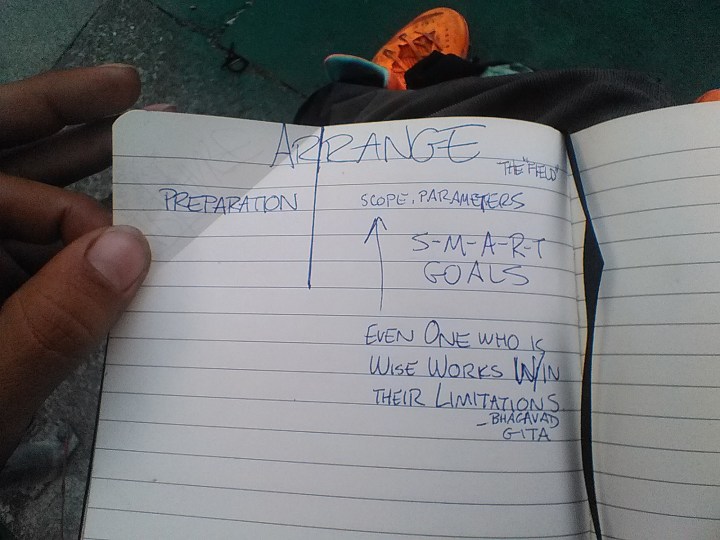 ARRANGE
THE "FIELD"
PREPARATION
SCOPE, PARAMETERS
S-M-A-R-T
GOALS
EVEN ONE WHO IS
WISE WORKS W/IN
THEIR LIMITATIONS
- BHAGAVAD
GITA